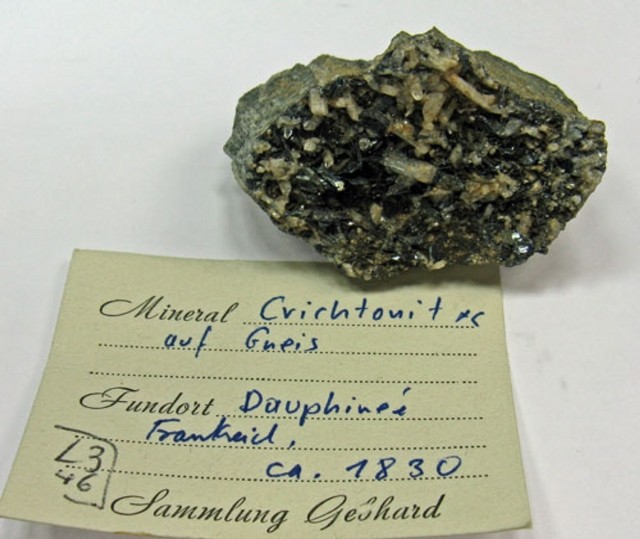 Mineral Crichtonit xx
auf Gneis
Fundort Dauphineé
Frankreich,
ca. 1830
L3
46
Sammlung Gebhard